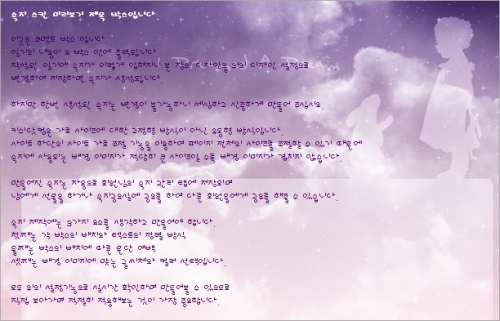 속지 스킨 미리보기 제목 박스입니다.
이곳은 코멘트 박스 입니다
일기의 내용이 요 박스 안에 출력됩니다
작성된 일기에 속지가 이렇게 입혀지니 본 창의 디자인을 위의 디자인 설정으로
변경하여 제작하면 속지가 생성됩니다
하지만 한번 생성된 속지는 변경이 불가능하니 세심하고 신중하게 만들어 주십시오.
키위닷컴은 가로 사이즈에 대한 고정형 방식이 아닌 유동형 방식입니다.
사이트 하단의 사이트 가로 조절 기능을 이용하여 페이지 전체의 사이즈를 조절할 수 있기 때문에
속지에 사용되는 배경 이미지가 적당히 큰 사이즈일 수록 배경 이미지가 겹치지 않습니다.
만들어진 속지는 자동으로 회원님의 속지 관리 탭에 저장되며
남에게 선물을 하거나 속지공유실에 공유를 하여 다른 회원들에게 공유를 해줄 수 있습니다.
속지 제작에는 3가지 요소를 생각하고 만들어야 합니다.
첫째는 각 박스의 배치와 텍스트의 정렬 방식
둘째는 박스의 배치에 따른 문단 여백
셋째는 배경 이미지에 맞는 글씨체와 컬러 선택입니다.
모두 위의 설정기능으로 실시간 확인하며 만들어볼 수 있으므로
직접 보아가며 적절히 적용해보는 것이 가장 중요합니다.